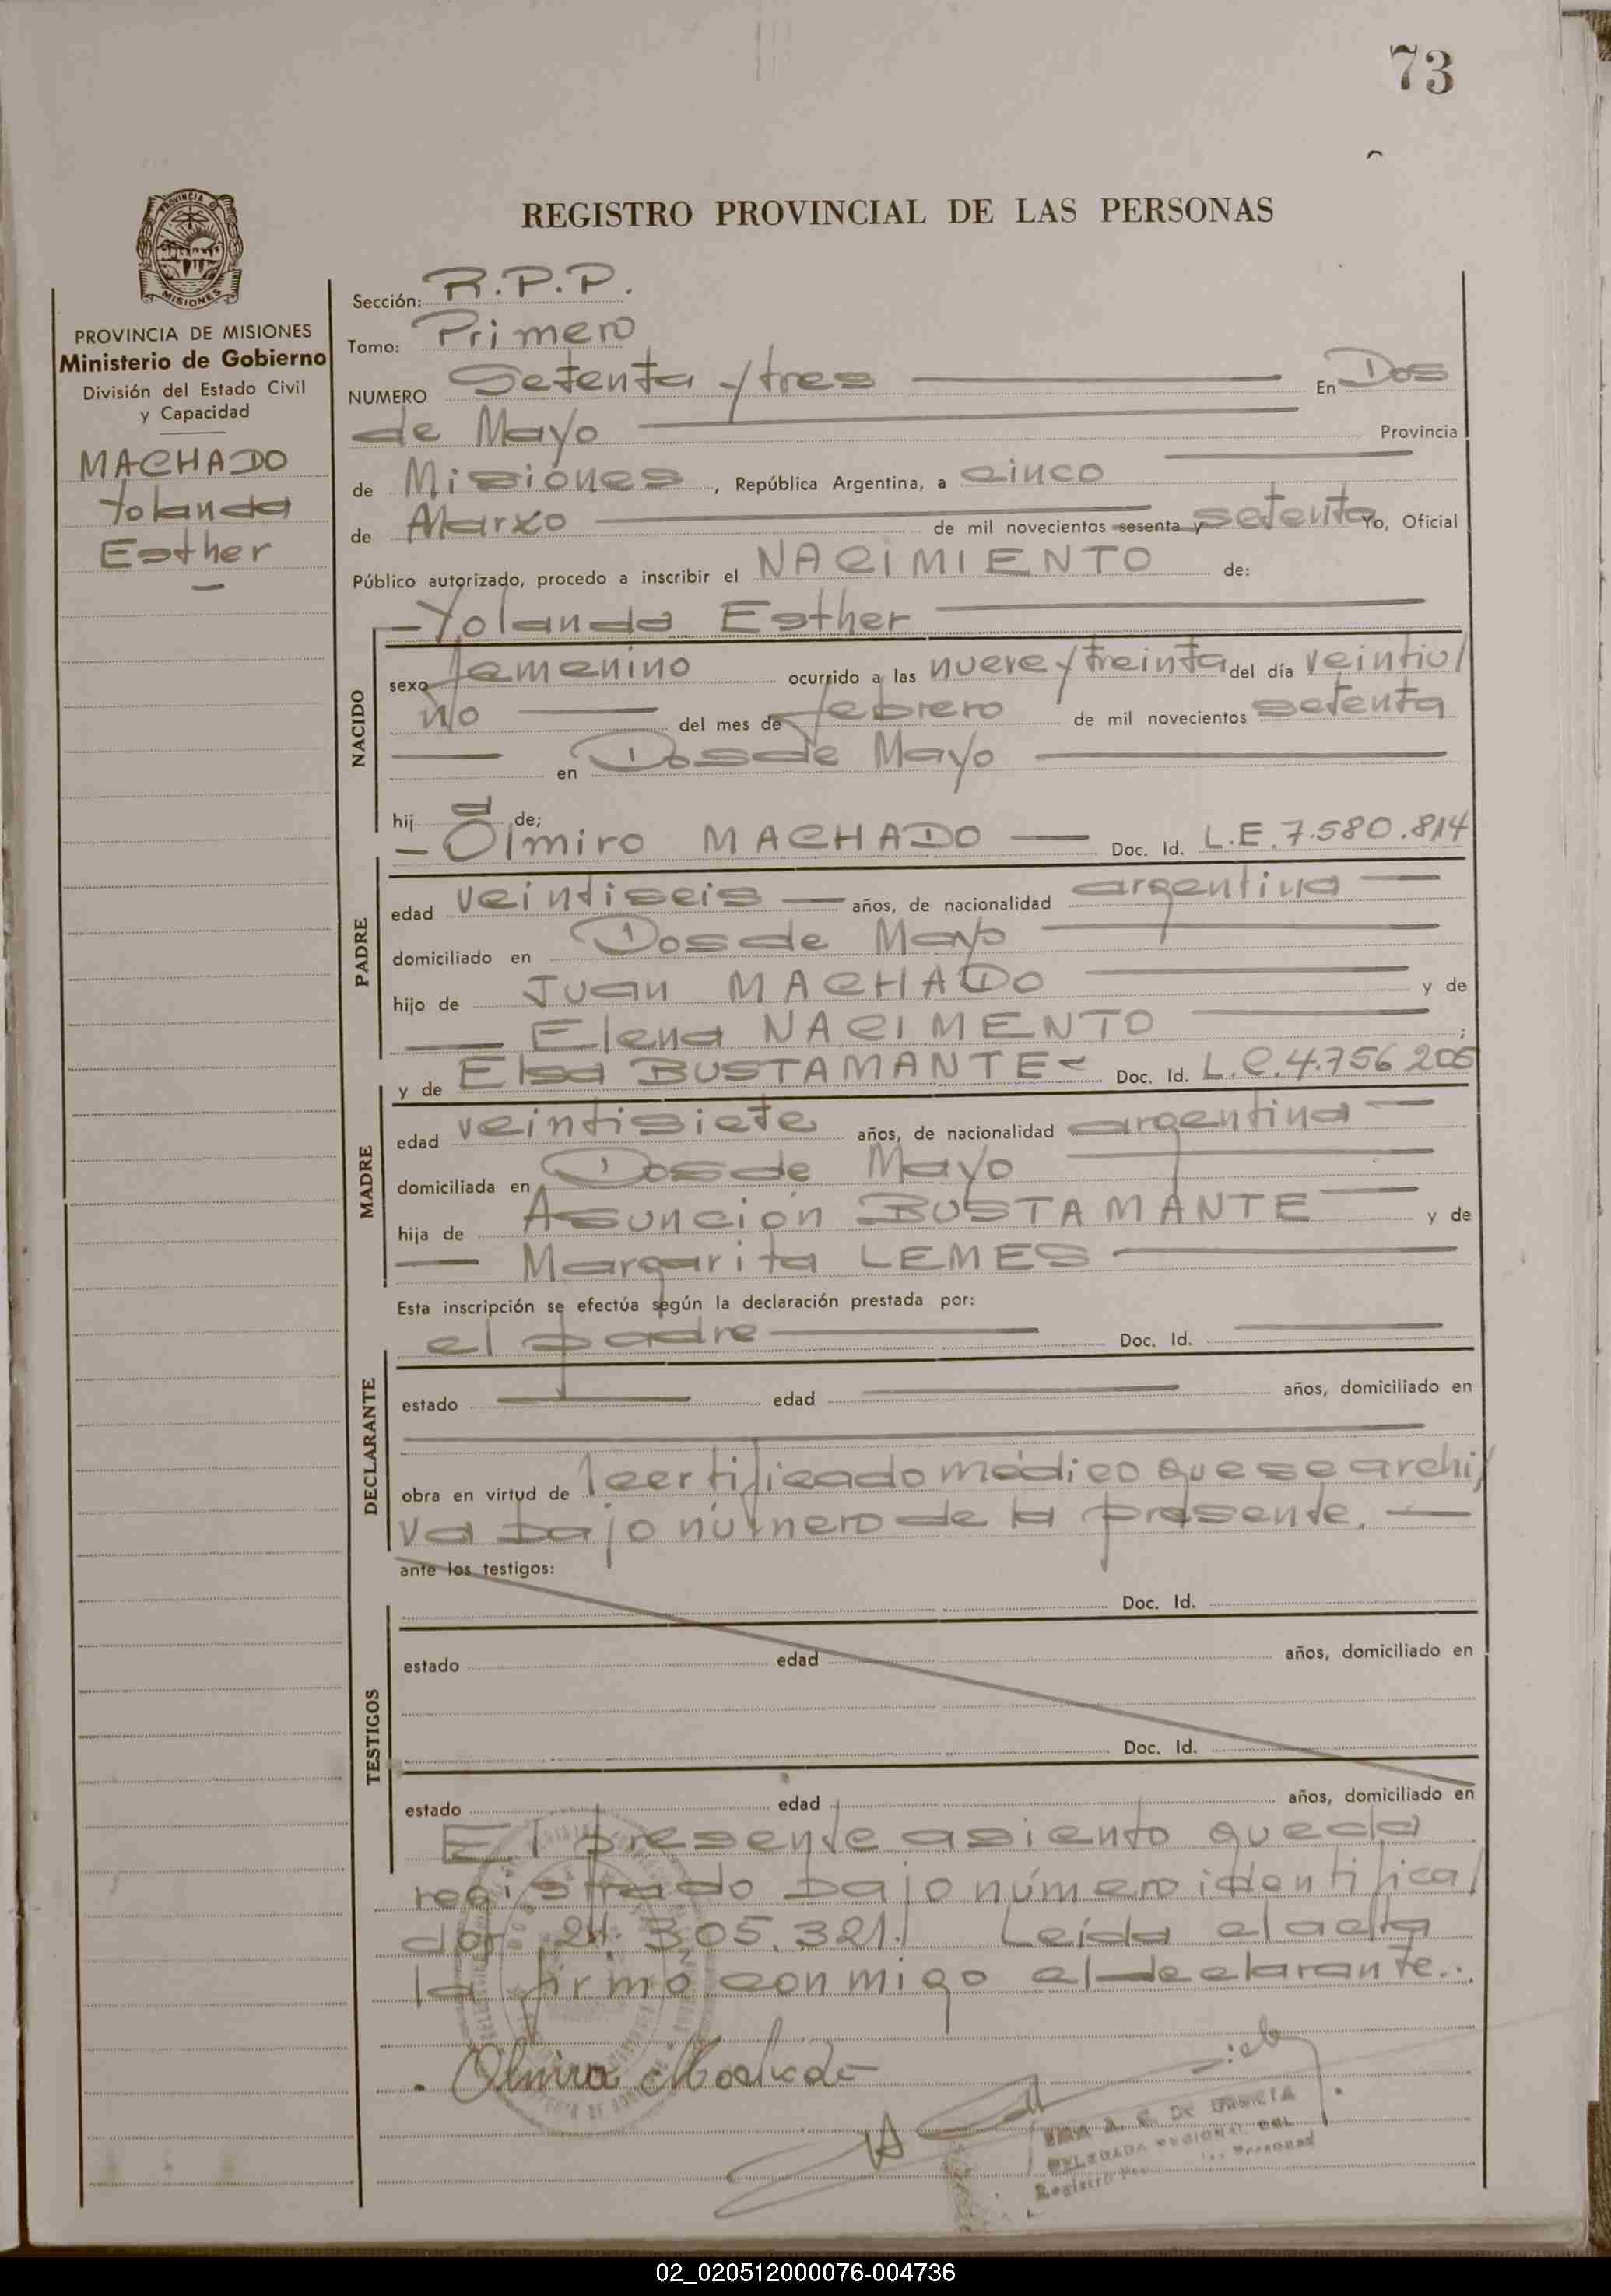 73
REGISTRO PROVINCIAL DE LAS PERSONAS
PROVINCIA DE MISIONES
MISIONES
PROVINCIA DE MISIONES
Ministerio de Gobierno
División del Estado Civil
y Capacidad
MACHADO
Yolanda
Esther
Sección: R.P.P.
Tomo: Primero
NUMERO Setenta y tres En Dos
de Mayo Provincia
de Misiones, República Argentina, a cinco
de Marzo de mil novecientos sesenta y setenta Yo, Oficial
Público autorizado, procedo a inscribir el NACIMIENTO de:
NACIDO
- Yolanda Esther
sexo femenino ocurrido a las nueve y treinta del día veintiu/
no del mes de febrero de mil novecientos setenta
en Dos de Mayo
hija de;
PADRE
- Olmiro MACHADO Doc. Id. L.E. 7.580.814
edad veintiseis años, de nacionalidad argentina
domiciliado en Dos de Mayo
hijo de Juan MACHADO y de
Elena NACIMENTO ;
MADRE
y de Elsa BUSTAMANTE - Doc. Id. L.C. 4.756 205
edad veintisiete años, de nacionalidad argentina
domiciliada en Dos de Mayo
hija de Asunción BUSTAMANTE y de
Margarita LEMES
Esta inscripción se efectúa según la declaración prestada por:
DECLARANTE
el padre Doc. Id.
estado edad años, domiciliado en
obra en virtud de certificado médico que se archi/
va bajo número de la presente.
ante los testigos:
TESTIGOS
Doc. Id.
estado edad años, domiciliado en
Doc. Id.
estado edad años, domiciliado en
El presente asiento queda
registrado bajo número identifica/
dor: 21.305.321./ Leída el acta
la firma conmigo el declarante..
Olmiro Machado
A. C. DE
DELEGADA REGIONAL DEL
Registro Personas
02_020512000076-004736